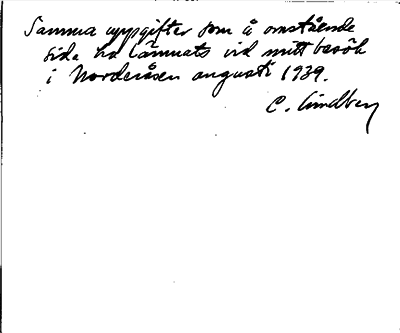 Samma uppgifter som å omstående
sida ha lämnats vid mitt besök
i Norderåsen augusti 1939.
C. Lindberg